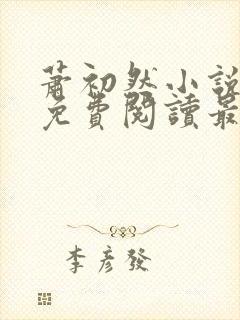 蕭初然小說
免費閱讀最
李彥發